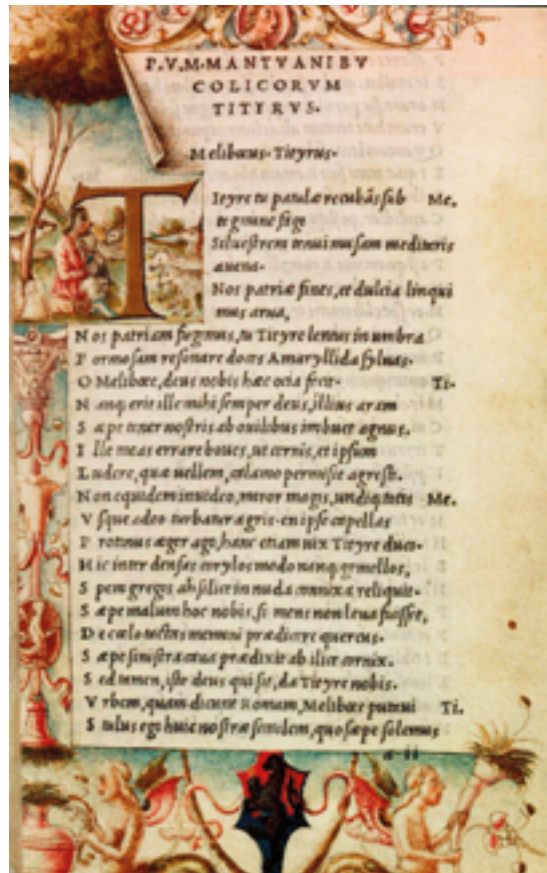 P.V.M.MANTVANI BV
COLICORVM
TITYRVS.
Meliboeus. Tityrus.
TItyre tu patulæ recubãs sub Me.
tegmine fagi
Siluestrem tenui musam meditaris
auena.
Nos patriæ fines, et dulcia linqui
mus arua,
Nos patriam fugimus, tu Tityre lentus in umbra
Formosam resonare doces Amaryllida syluas.
O Meliboee, deus nobis hæc ocia fecit. Ti.
Nanq; erit ille mihi semper deus, illius aram
Sæpe tener nostris ab ouilibus imbuet agnus.
Ille meas errare boues, ut cernis, et ipsum
Ludere, quæ uellem, calamo permisit agresti.
Non equidem inuideo, miror magis, undiq; totis Me.
Vsque adeo turbatur agris. en ipse capellas
Protinus æger ago, hanc etiam uix Tityre duco.
Hic inter densas corylos modo nanq; gemellos,
Spem gregis ah silice in nuda connixa reliquit.
Sæpe malum hoc nobis, si mens non leua fuisset,
De cœlo tactas memini prædicere quercus.
Sæpe sinistra caua prædixit ab ilice cornix.
Sed tamen, iste deus qui sit, da Tityre nobis.
Vrbem, quam dicunt Romam, Meliboee putaui Ti.
Stultus ego huic nostræ similem, quo sæpe solemus
a ii